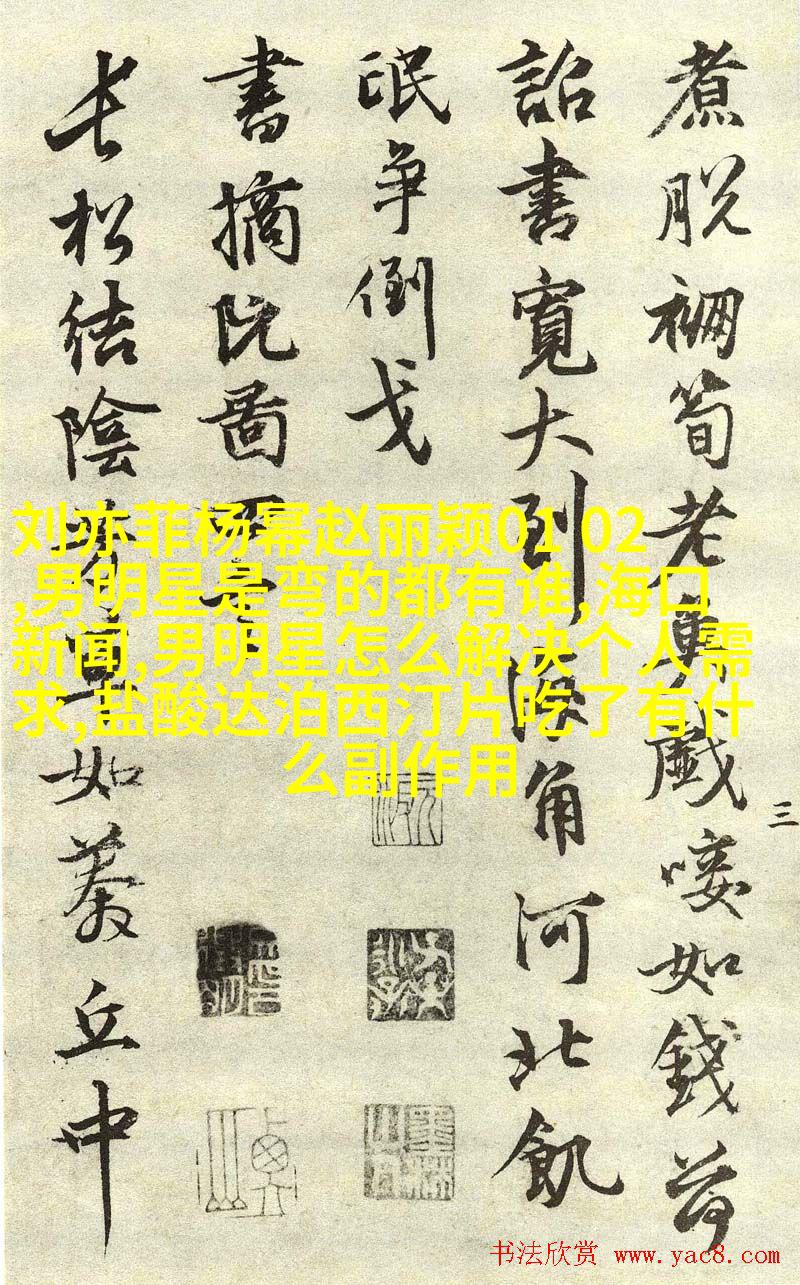 煮脱筍老戯唼如錢荷
詔書寬大到海角河北飢
氓争倒戈
書摘阮啚
長松結陰如丘中
三
刘亦菲杨幂赵丽颖01 02
,男明星是弯的都有谁,海口
新闻,男明星怎么解决个人需
求,盐酸达泊西汀片吃了有什
么副作用
书法欣赏 www.yac8.com